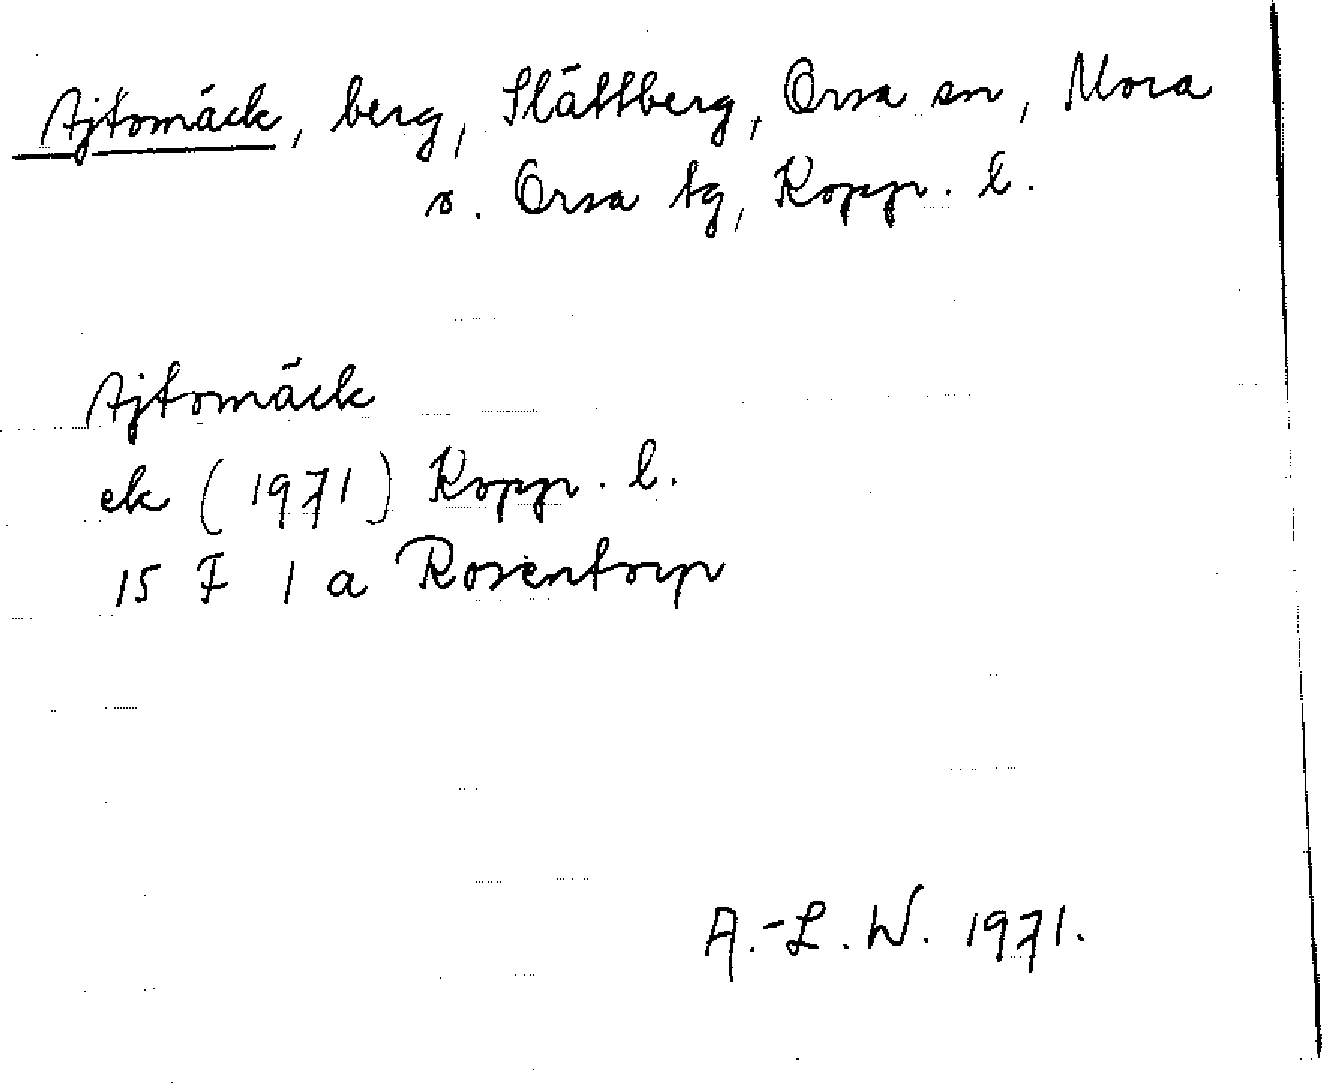 Ajtomäck, berg, Slättberg, Orsa sn, Mora
o. Orsa tg, Kopp. l.
Ajtomäck
ek (1971) Kopp. l.
15 F 1 a Rosentorp
A.-L. W. 1971.